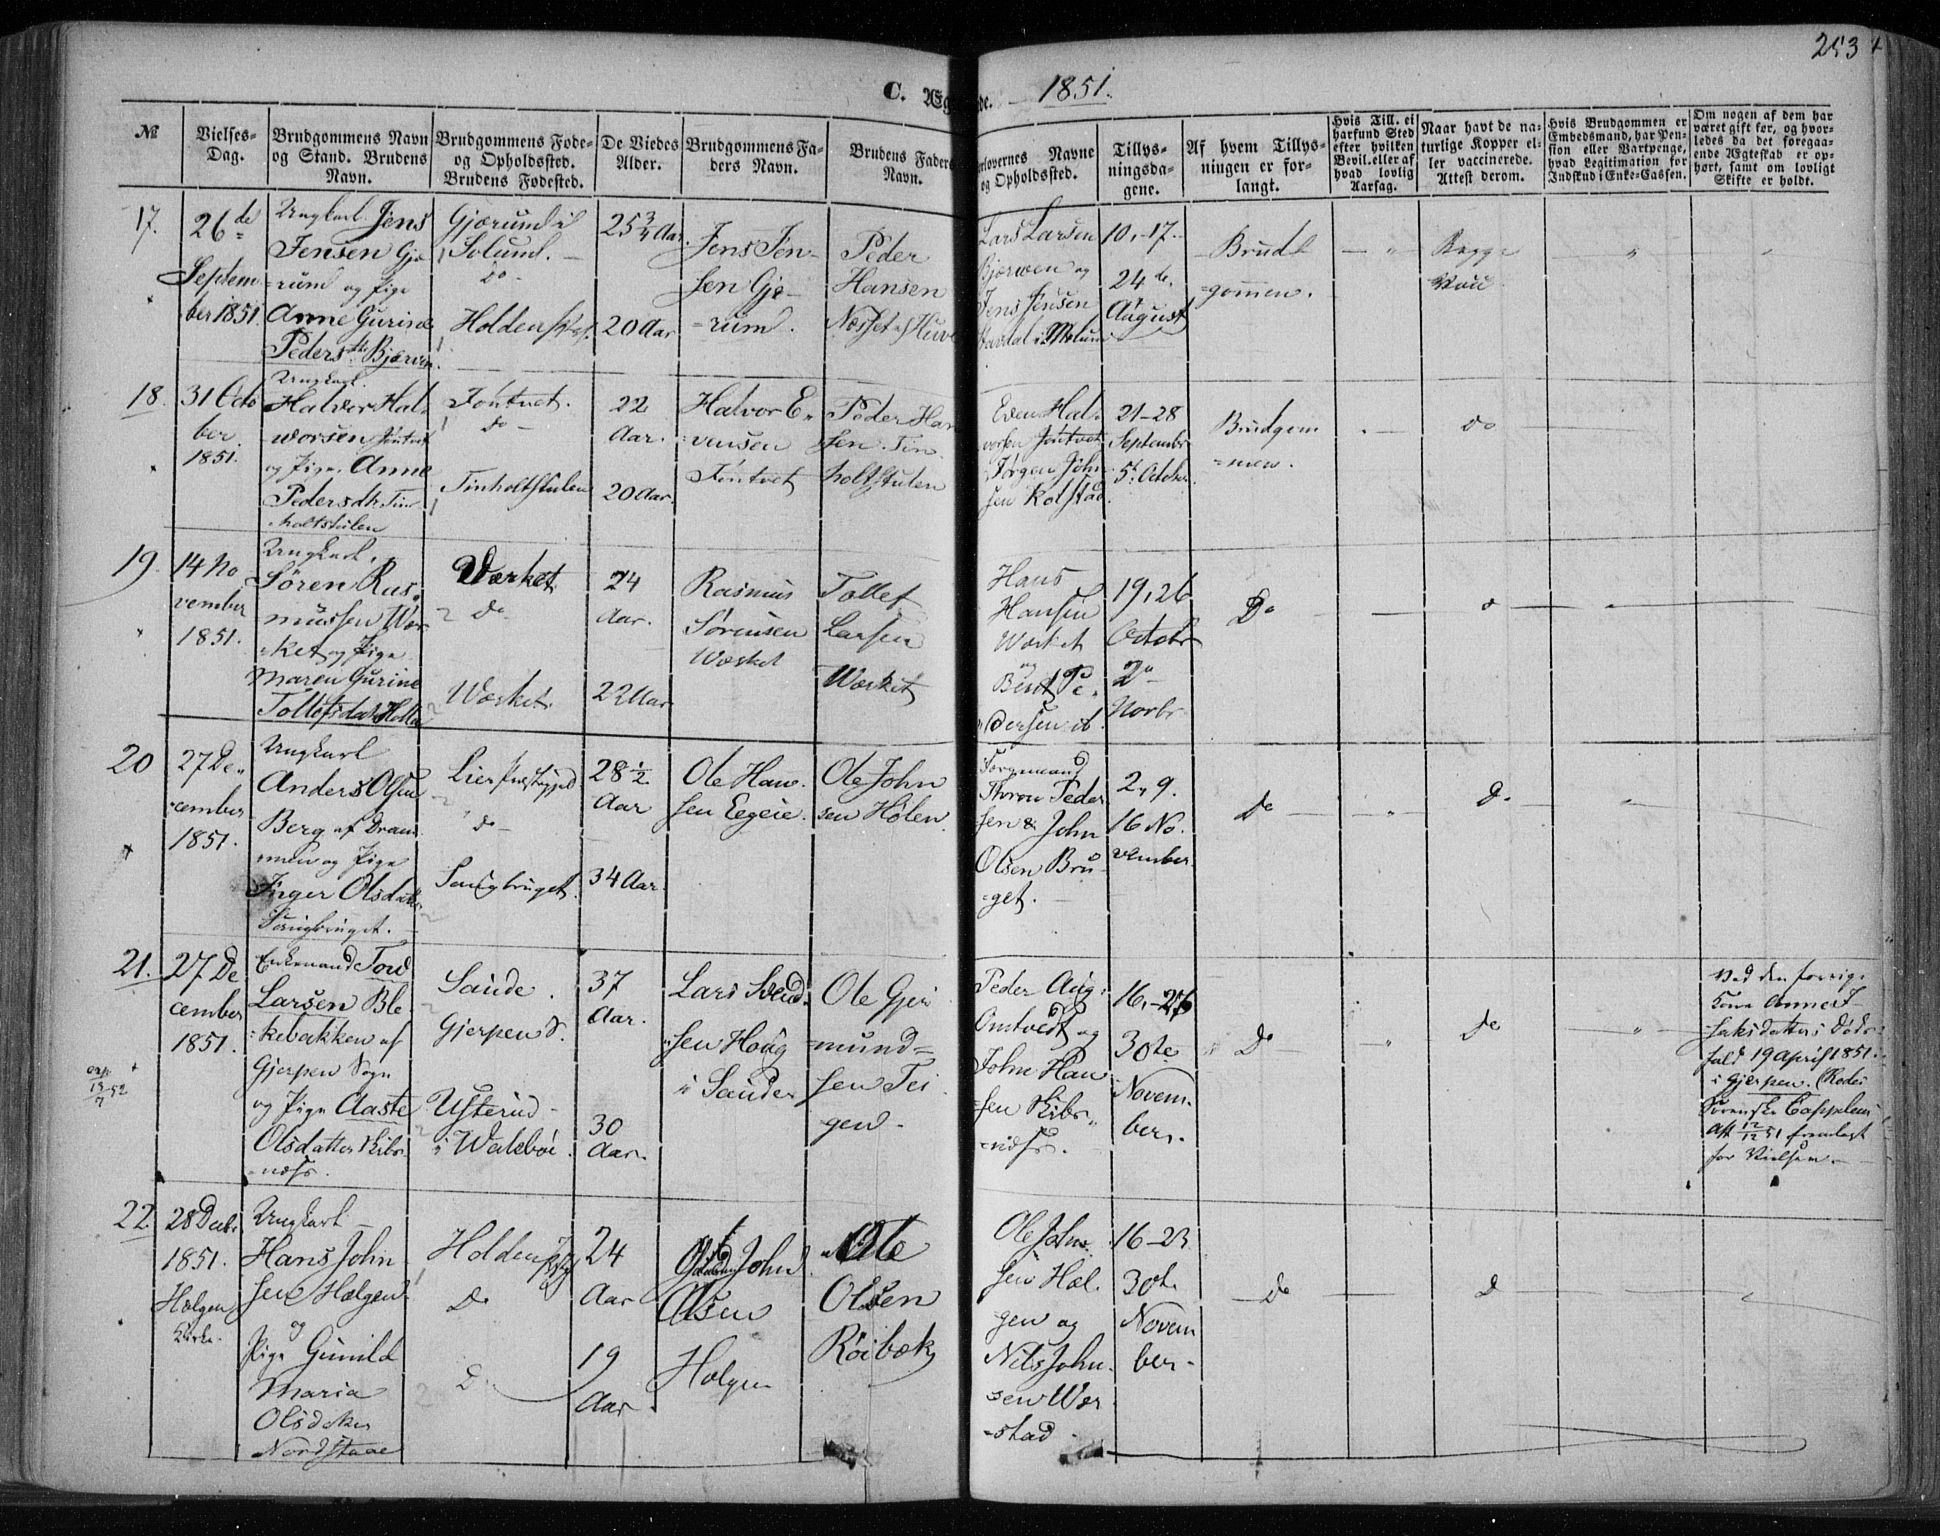 253
C. Ægteviede. 1851.
№
Vielses-
Dag.
Brudgommens Navn
og Stand. Brudens
Navn.
Brudgommens Føde-
og Opholdssted.
Brudens Fødested.
De Viedes
Alder.
Brudgommens Fa-
ders Navn.
Brudens Faders
Navn.
Forlovernes Navne
og Opholdssted.
Tillys-
ningsda-
gene.
Af hvem Tillys-
ningen er for-
langt.
Hvis Till. ei
har fund Sted
efter hvilken
Bevil. eller af
hvad lovlig
Aarsag.
Naar havt de na-
turlige Kopper el-
ler vaccinerede.
Attest derom.
Hvis Brudgommen er
Embedsmand, har Pen-
sion eller Vartpenge,
hvad Legitimation for
Indskud i Enke-Cassen.
Om nogen af dem har
været gift før, og hvor-
ledes da det foregaa-
ende Ægteskab er op-
hørt, samt om lovligt
Skifte er holdt.
17.
26de
Septem
ber 1851.
Ungkarl Jens
Jensen Gje
=rum og Pige
Anne Gurine
Pedersdtr Bjerven
Gjerum i
Solum.
do
Holden
25 3/4 Aar.
20 Aar
Jens Jen-
sen Gje-
=rum.
Peder
Hansen
Næsset
Lars Larsen
Bjerven og
Jens Jensen
i Melum
10,-17.
24de
August
Brud
=gommen.
Begge
18.
31 Octo
ber
1851.
Ungkarl
Halvor Hal
=vorsen Jøntvet
og Pige Anne
Pedersdtr Tin
=holtstulen
Jøntvet.
do
Tinholtstulen
22
Aar.
20 Aar.
Halvor E-
=vensen
Jøntvet
Peder Han
sen. Tin
holtstulen
Even Hal-
vorsen Jøntvet
Jørgen John
sen Kolstad
21-28
Septembr
5t October
Brudgom
=men.
do
19.
14 No
vember
1851.
Ungkarl
Søren Ras
mussen Vær
=ket og Pige
Maren Gurine
Tollefsdatter Holla
Værket
do
Værket
24
Aar.
22 Aar
Rasmus
Sørensen
Værket
Tollef
Larsen
Værket
Hans
Hansen
Værket
og
Bent Pe-
dersen ib.
19, 26
Octobr
2
Novbr
Do
20
27 De-
cember
1851.
Ungkarl
Anders Olsen
Berg af Dram
men og Pige
Inger Olsdatter
Saugbruget.
Lier Præstegjeld
do
Saugbruget.
28 1/2
Aar
34 Aar.
Ole Han-
sen Eegeie.
Ole John
sen Hølen
Thron Peder
sen & John
Olsen Bru-
=get.
2, 9.
16 No.
vember
Do
Do
21.
27 De
cember
1851.
Enkemand Tord
Larsen Ble
=kebakken af
Gjerpen Sogn
og Pige Aaste
Olsdatter Kibs
=næss.
Saude.
Gjerpen S.
Usterud
i Valebøe.
37
Aar.
30
Aar.
Lars Svend-
sen Houg
i Saude
Ole Gjer
mund=
sen Tei
gen.
Peder Aug:
Omtvedt og
John Han
sen Kibs-
=næss.
16,-23
30te
Novem-
ber.
Do
Do
Ved den forrige
Kone Anne I
saksdatters Døds
fald 19 April 1851.
i Gjerpen.
Att 12/12 51 fremlagt
for Vielsen.
22.
28 Decbr
1851.
Helgen
Kirke.
Ungkarl
Hans John
sen Helgen
og
Pige Gunild
Maria
Olsdatter
Nordstaae
Holden
Do
Do
24
Aar
19
Aar
John
Olsen
Helgen
Ole
Olsen
Røibæk
Ole John
sen Hel-
gen og
Nils John-
sen Ver
=stad
16-23
30te
Novem
ber.
Do
Do